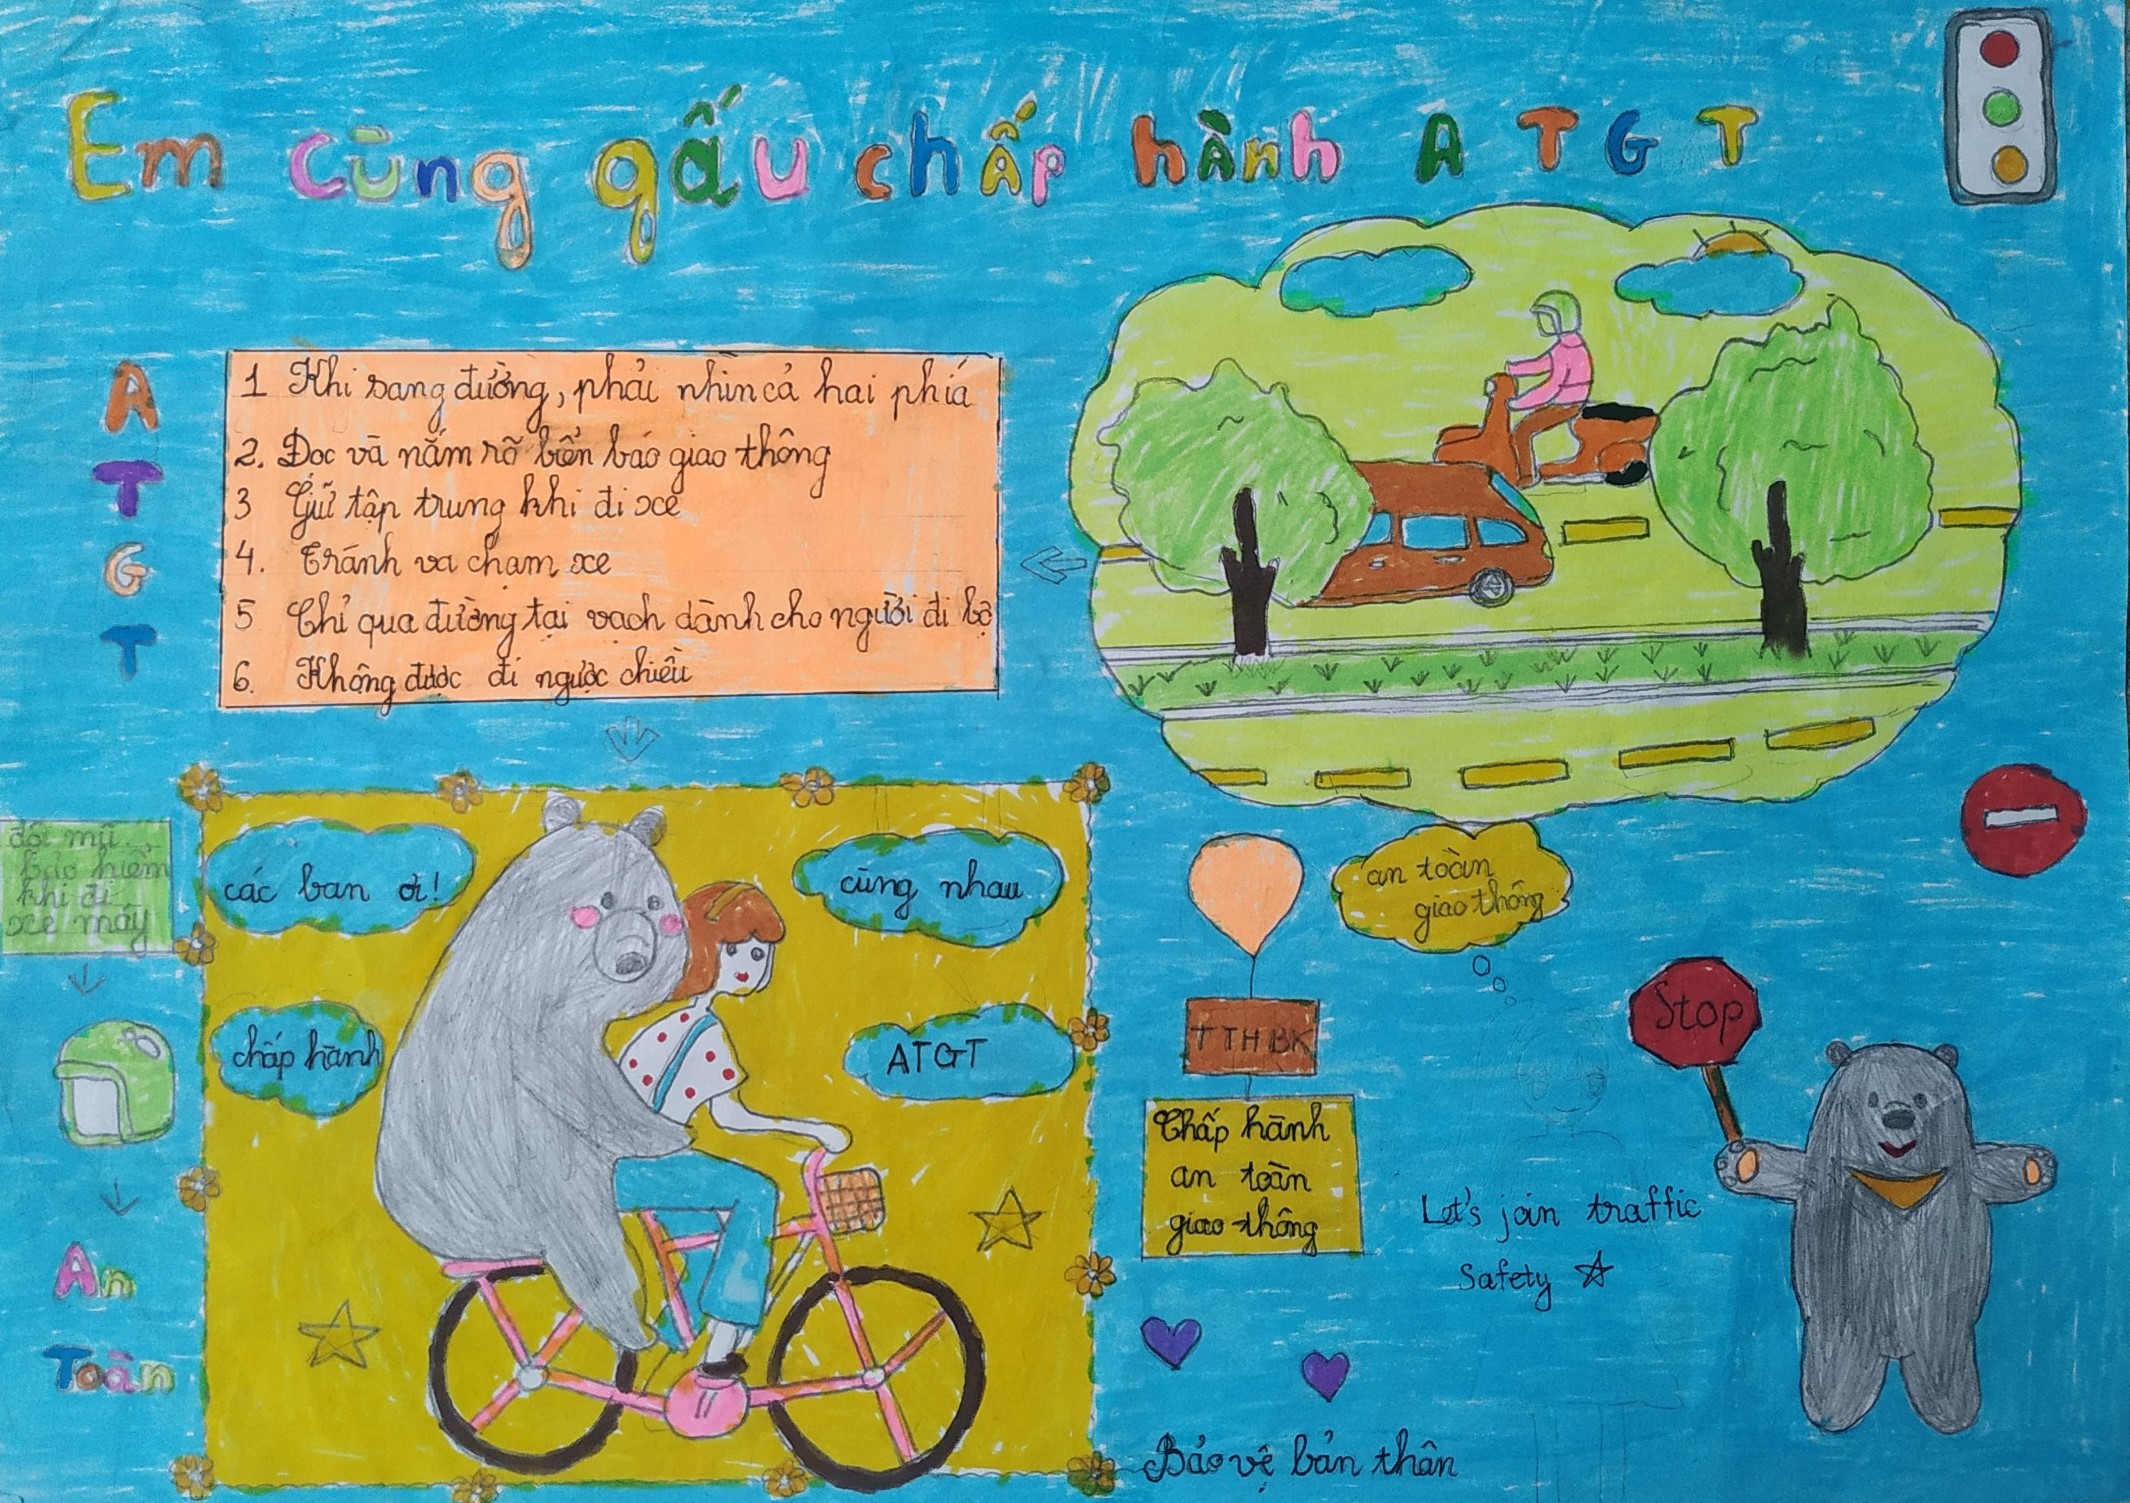 Em cùng gấu chấp hành ATGT
A
T
G
T
1 Khi sang đường, phải nhìn cả hai phía
2. Đọc và nắm rõ biển báo giao thông
3 Giữ tập trung khi đi xe
4. Tránh va chạm xe
5 Chỉ qua đường tại vạch dành cho người đi bộ
6. Không được đi ngược chiều
đội mũ
bảo hiểm
khi đi
xe máy
An
Toàn
các bạn ơi!
cùng nhau
chấp hành
ATGT
an toàn
giao thông
TTHBK
Chấp hành
an toàn
giao thông
Stop
Let's join traffic
Safety
Bảo vệ bản thân